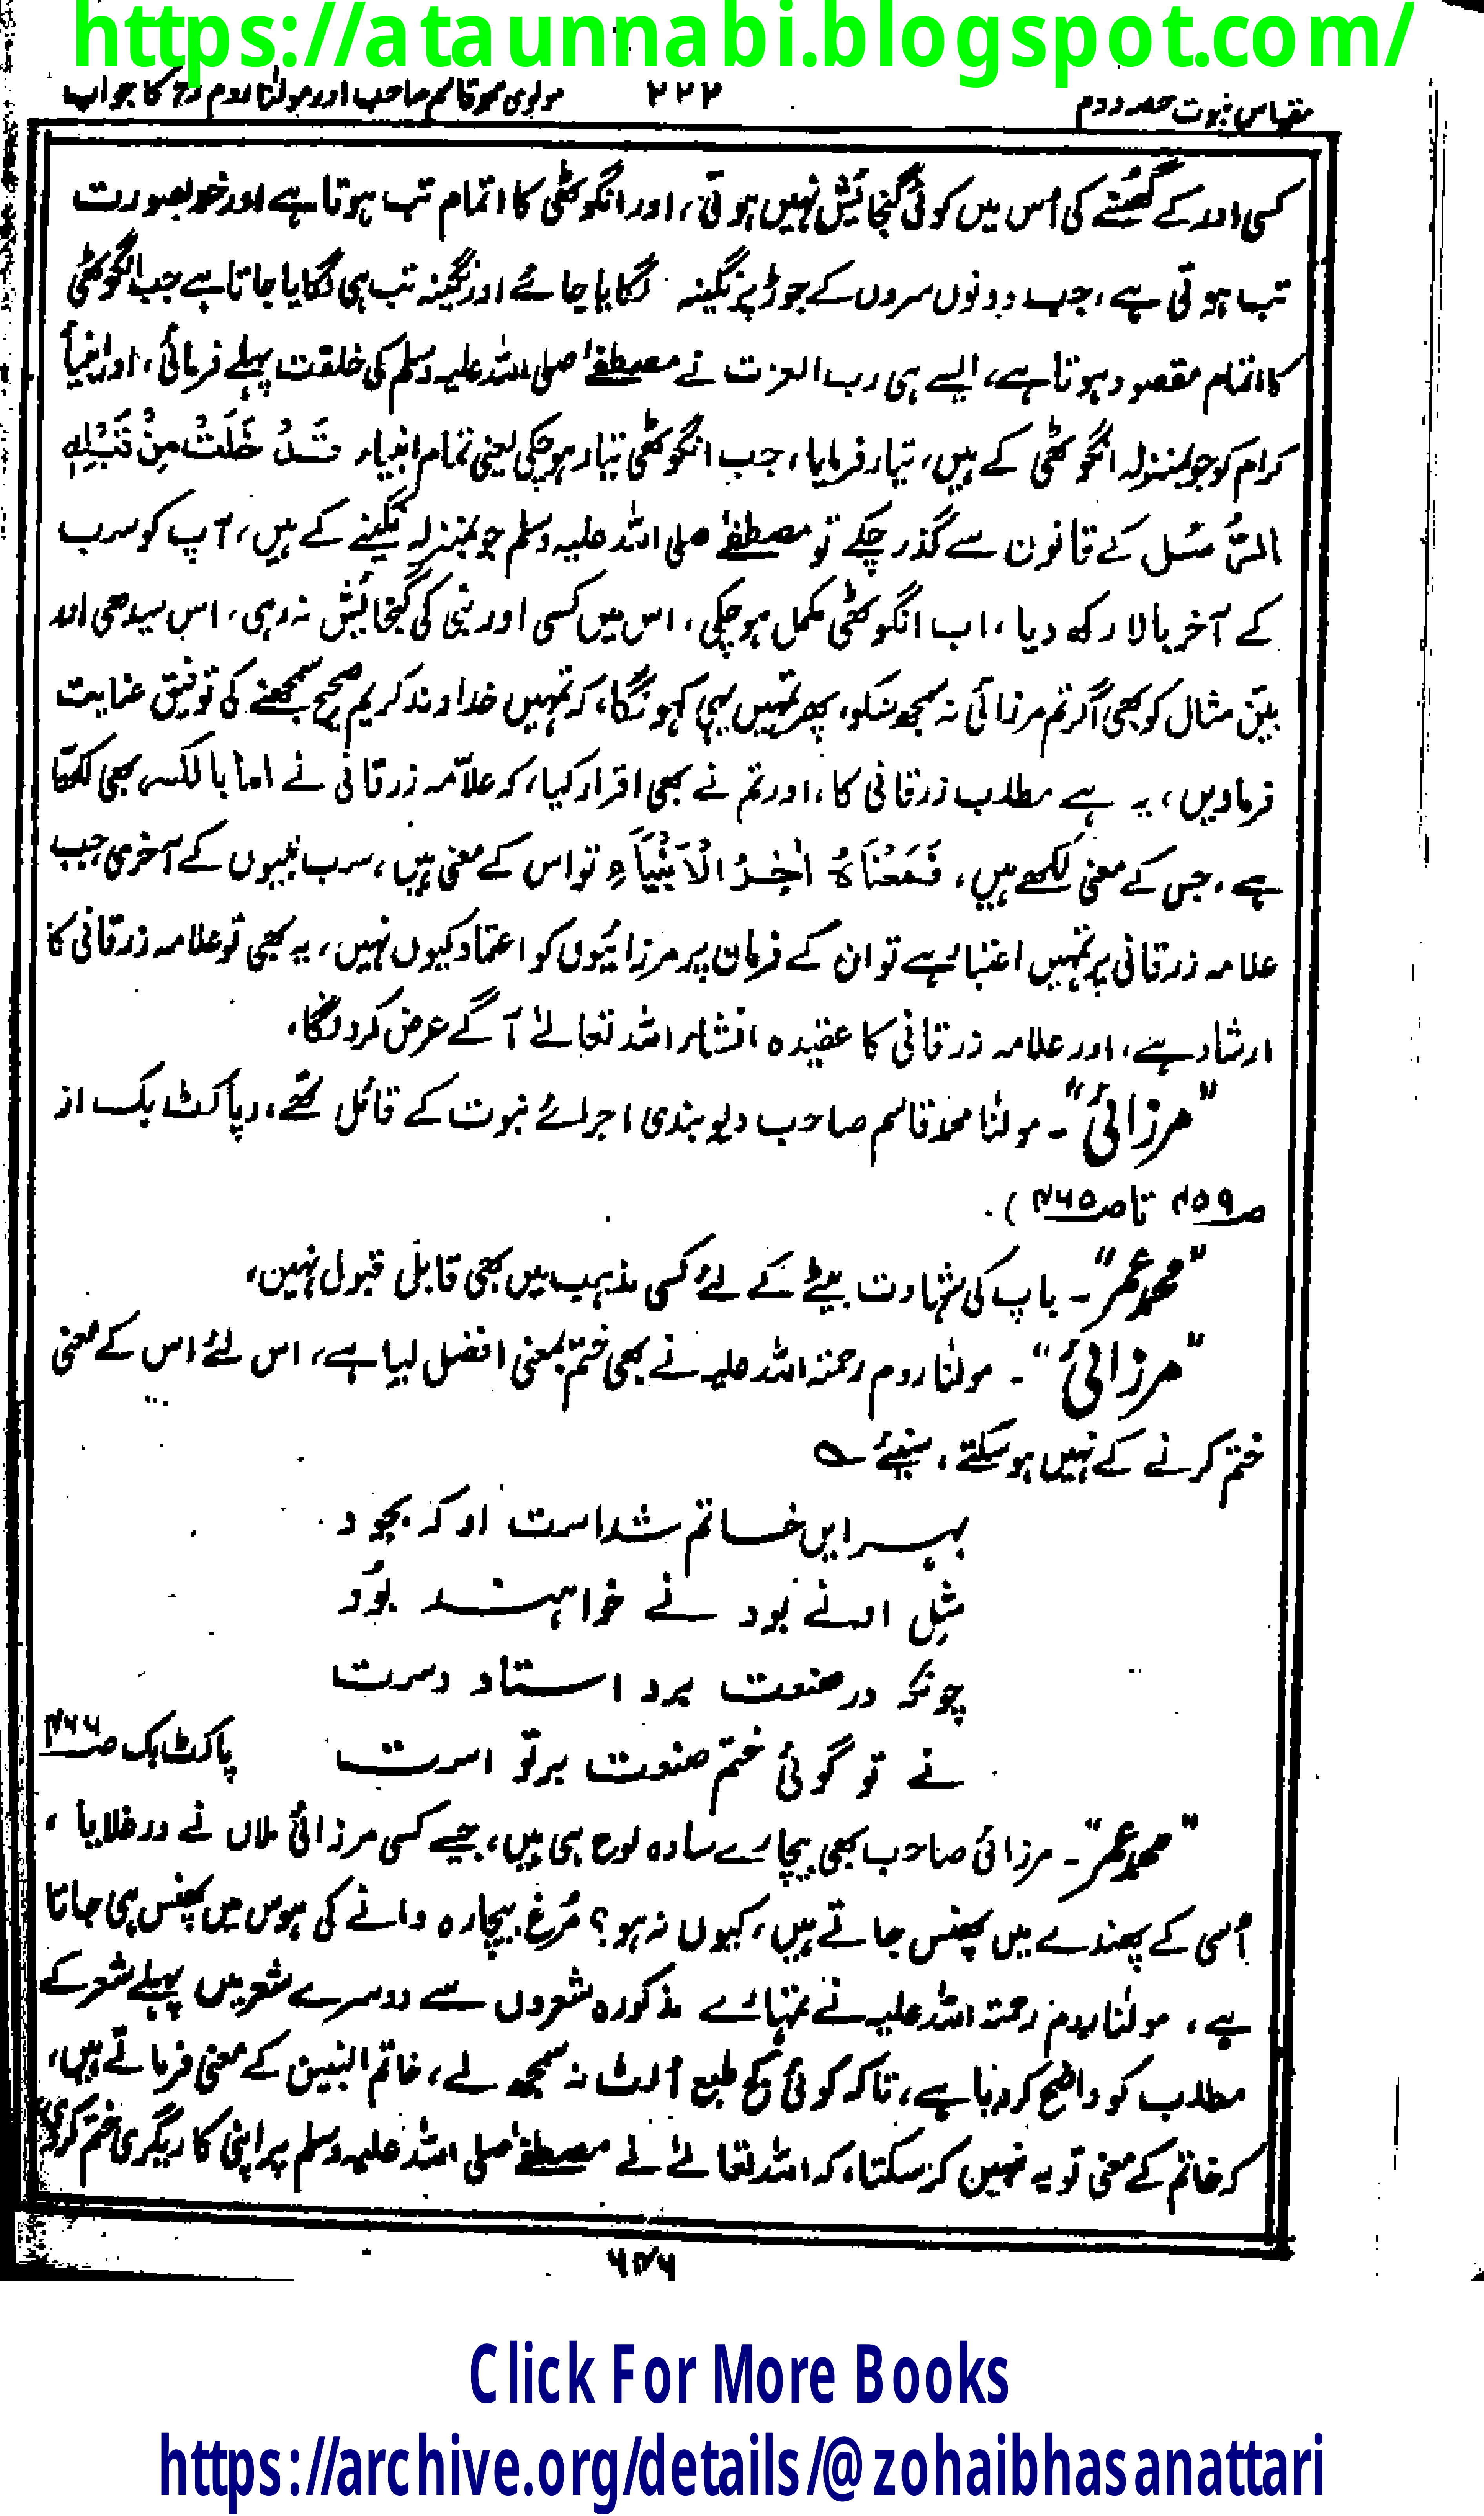 https://ataunnabi.blogspot.com/
مقیاس نبوت حصہ دوم ۲۲۲ مولوی محمد قاسم صاحب اور مولٰنا روم رح کا جواب
کسی اور کے گھُسنے کی اس میں کوئی گنجائیش نہیں ہوتی، اور انگوٹھی کا اتمام تب ہوتا ہے اور خوبصورت
تب ہوتی ہے، جب دونوں سروں کے جوڑ پر نگینہ لگایا جائے اور نگینہ تب ہی لگایا جاتا ہے جب انگوٹھی
کا اتمام مقصود ہوتا ہے، ایسے ہی رب العزت نے مصطفےٰ صلی اللہ علیہ وسلم کی خلقت پہلے فرمائی، اور انبیاء
کرام کو جو بمنزلہ انگوٹھی کے ہیں، تیار فرمایا، جب انگوٹھی تیار ہو چکی یعنی تمام انبیاء قَدْ خَلَتْ مِنْ قَبْلِهِ
الرُّسُل کے قانون سے گذر چکے تو مصطفےٰ صلی اللہ علیہ وسلم جو بمنزلہ نگینے کے ہیں، آپ کو سب
کے آخر بالا رکھ دیا، اب انگوٹھی مکمل ہو چکی، اس میں کسی اور نبی کی گنجائیش نہ رہی، اس سیدھی اور
بیّن مثال کو بھی اگر تم مرزائی نہ سمجھ سکو، پھر تمہیں یہی کہونگا، کہ تمہیں خداوند کریم صحیح سمجھنے کی توفیق عنایت
فرماویں، یہ ہے مطلب زرقانی کا، اور تم نے بھی اقرار کیا، کہ علاّمہ زرقانی نے اما بالکسر بھی لکھا
ہے، جس کے معنی لکھے ہیں، فَمَعْنَاهُ اٰخِرُ الْاَنْبِیَآءِ تو اس کے معنی ہیں، سب نبیوں کے آخری جب
علامہ زرقانی پر تمہیں اعتبار ہے تو ان کے فرمان پر مرزائیوں کو اعتماد کیوں نہیں، یہ بھی تو علامہ زرقانی کا
ارشاد ہے، اور علامہ زرقانی کا عقیدہ انشاء اللہ تعالےٰ آگے عرض کروں گا،
"مرزائی"۔ مولٰنا محمد قاسم صاحب دیوبندی اجرائے نبوت کے قائل تھے، (پاکٹ بک از
صـ۴۵۹ تا صـ۴۶۵)۔
"محمد عمر"۔ باپ کی شہادت بیٹے کے لئے کسی مذہب میں بھی قابل قبول نہیں،
"مرزائی"۔ مولٰنا روم رحمۃ اللہ علیہ نے بھی ختم بمعنی افضل لیا ہے، اس لئے اس کے معنی
ختم کرنے کے نہیں ہو سکتے، سنیئے ؎
بہر ایں خاتم شد است او کہ بجود
مثل او نے بود نے خواہند بود
چونکہ در صنعت برد استاد دست
نے تو گوئی ختم صنعت بر تو است پاکٹ بک صـ۴۶۶
"محمد عمر"۔ مرزائی صاحب بھی بیچارے سادہ لوح ہی ہیں، جسے کسی مرزائی ملاں نے ورغلایا،
اُسی کے پھندے میں پھنس جاتے ہیں، کیوں نہ ہو؟ مُرغ بیچارہ دانے کی ہوس میں پھنس ہی جاتا
ہے، مولٰنا روم رحمۃ اللہ علیہ نے تمہارے مذکورہ شعروں سے دوسرے شعر میں پہلے شعر کے
مطلب کو واضح کر دیا ہے، تاکہ کوئی کج طبع اُلٹ نہ سمجھ لے، خاتم النبین کے معنی فرماتے ہیں،
کہ خاتم کے معنی تو یہ نہیں کر سکتا، کہ اللہ تعالےٰ نے مصطفےٰ صلی اللہ علیہ وسلم پر اپنی کاریگری ختم کر دی
۶۴۶
Click For More Books
https://archive.org/details/@zohaibhasanattari